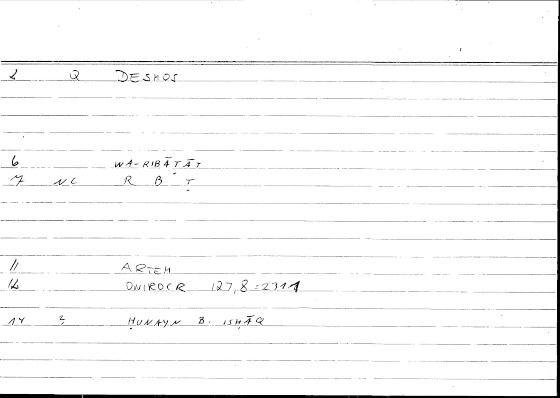 2 Q DESMOS
6 WA-RIBĀṬĀT
7 NC R B Ṭ
11 ARTEM
12 ONIROCR 127,8 = 231,1
14 2 ḤUNAYN B. ISḤĀQ